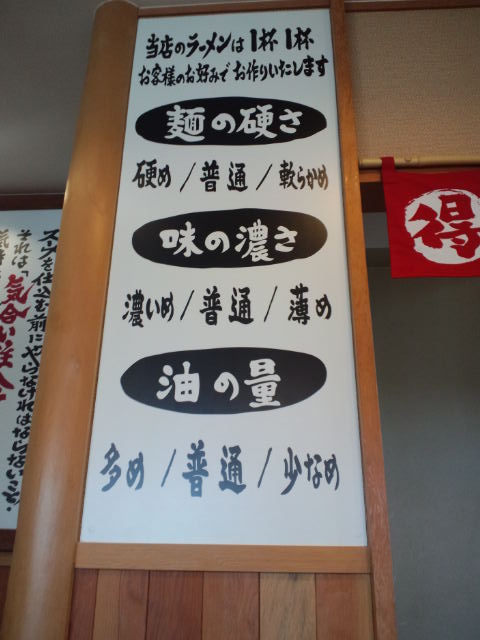 当店のラーメンは1杯1杯
お客様のお好みで お作りいたします
麺の硬さ
硬め / 普通 / 軟らかめ
味の濃さ
濃いめ / 普通 / 薄め
油の量
多め / 普通 / 少なめ
得
スープを仕込む前にやらなければならないこと。
それは「気合い注入」